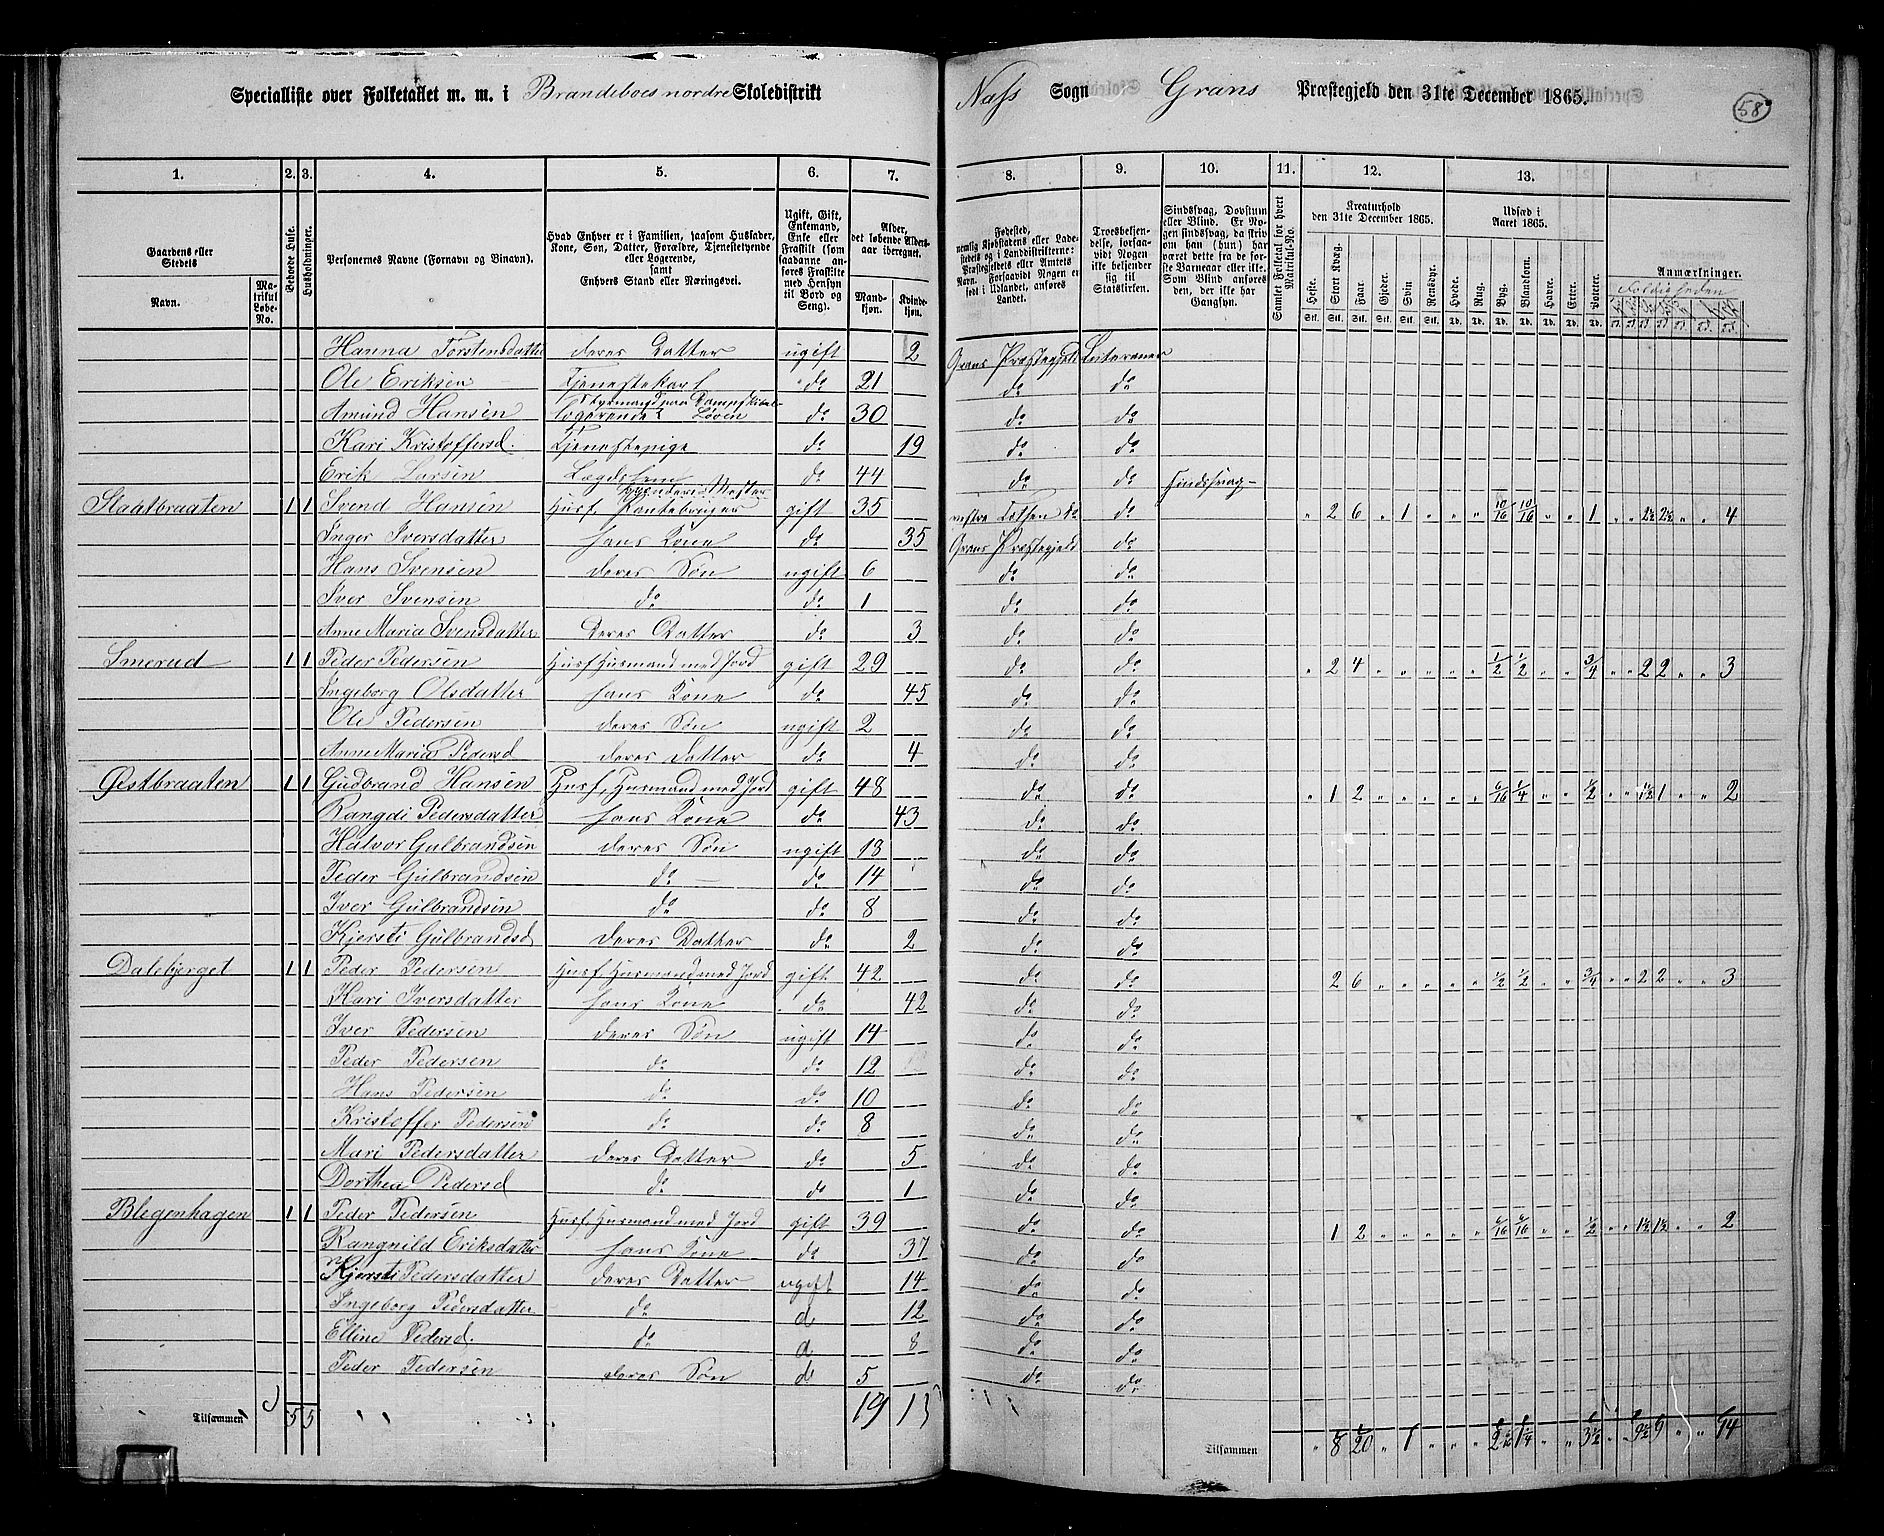 Specialliste over Folketallet m. m. i Brandeboes nordre Skoledistrikt
Næss Sogn Grans Præstegjeld den 31te December 1865.
58
1. 2. 3. 4. 5. 6. 7.
8. 9. 10. 11. 12. 13.
Gaardens eller Stedets Navn. Matrikul Løbe-No. Beboede Huse. Husholdninger. Personernes Navne (Fornavn og Binavn). Hvad Enhver er i Familien, saasom Husfader, Kone, Søn, Datter, Forældre, Tjenestetyende eller Logerende, samt Enhvers Stand eller Næringsvei. Ugift, Gift, Enkemand, Enke eller Fraskilt (som saadanne anføres Fraskilte med Hensyn til Bord og Seng). Alder, det løbende Alders-aar iberegnet. Mandkjøn. Kvindekjøn.
Fødested, nemlig Kjøbstadens eller Ladestedets og i Landdistrikterne: Præstegjeldets eller Amtets Navn. Forsaavidt Nogen er født i Udlandet, anføres Landet. Troesbekjendelse, forsaavidt Nogen ikke bekjender sig til Statskirken. Sindssvag, Døvstum eller Blind. Er Nogen sindssvag, da skriv om han (hun) har været dette fra de første Barneaar eller ikke. Som Blind anføres den, der ikke har Gangsyn. Samlet Folketal for hvert Matrikul-No. Kreaturhold den 31te December 1865. Udsæd i Aaret 1865. Anmærkninger.
Heste. Stort Kvæg. Faar. Gjeder. Svin. Rensdyr. Hvede. Rug. Byg. Blandkorn. Havre. Erter. Poteter.
Stk. Stk. Stk. Stk. Stk. Stk. Td. Td. Td. Td. Td. Td. Td.
Hanna Torstensdatter deres Datter ugift 2 Grans Præstegjeld Luteraner
Ole Eriksen Tjenestekarl do 21 do do
Amund Hansen Logerende Styrmand paa Dampskibet Løven do 30 do do
Kari Kristoffersd. Tjenestepige do 19 do do
Erik Larsen Lægdslem do 44 do do Sindssvag
Staatbraaten 1 1 Svend Hansen Husf. gift 35 do do " 2 6 " 1 " " " 10/16 10/16 " " 1 " " 2½ 2½ " " 4
Inger Iversdatter hans Kone do 35 Grans Præstegjeld do
Hans Svensen deres Søn ugift 6 do do
Iver Svensen do do 1 do do
Anne Maria Svensdatter deres Datter do 3 do do
Smerud 1 1 Peder Pedersen Husf Husmand med Jord gift 29 do do " 2 4 " " " " " 1/2 1/2 " " 3/4 " " 2 2 " " 3
Ingeborg Olsdatter hans Kone do 45 do do
Ole Pedersen deres Søn ugift 2 do do
Anne Maria Pedersd deres Datter do 4 do do
Gestbraaten 1 1 Gudbrand Hansen Husf, Husmand med Jord gift 48 do do " 1 2 " " " " " 6/16 1/4 " " 1/2 " " 1½ 1 " " 2
Rangdi Pedersdatter hans Kone do 43 do do
Halvor Gulbrandsen deres Søn ugift 18 do do
Peder Gulbrandsen do do 14 do do
Iver Gulbrandsen do do 8 do do
Kjersti Gulbrandsd deres Datter do 2 do do
Dalebjerget 1 1 Peder Pedersen Husf Husmand med Jord gift 42 do do 2 6 " " " " " 1/2 1/2 " " 3/4 " " 2 2 " " 3
Kari Iversdatter hans Kone do 42 do do
Iver Pedersen deres Søn ugift 14 do do
Peder Pedersen do do 12 do do
Hans Pedersen do do 10 do do
Kristoffer Pedersen do do 8 do do
Mari Pedersdatter deres Datter do 5 do do
Dorthea Pedersd do do 1 do do
Blegenhagen 1 1 Peder Pedersen Husf Husmand med Jord gift 39 do do 1 2 " " " " " 6/16 6/16 " " 1/2 " " 1½ 1½ " " 2
Rangnild Eriksdatter hans Kone do 37 do do
Kjersti Pedersdatter deres Datter ugift 14 do do
Ingeborg Pedersdatter do d 12 do do
Elline Pedersd. do d 8 do do
Peder Pedersen deres Søn d 5 do do
Tilsammen 5 5 19 15
Tilsammen " 8 20 " 1 " " " " " 3½ " " 9½ 9 " " 14